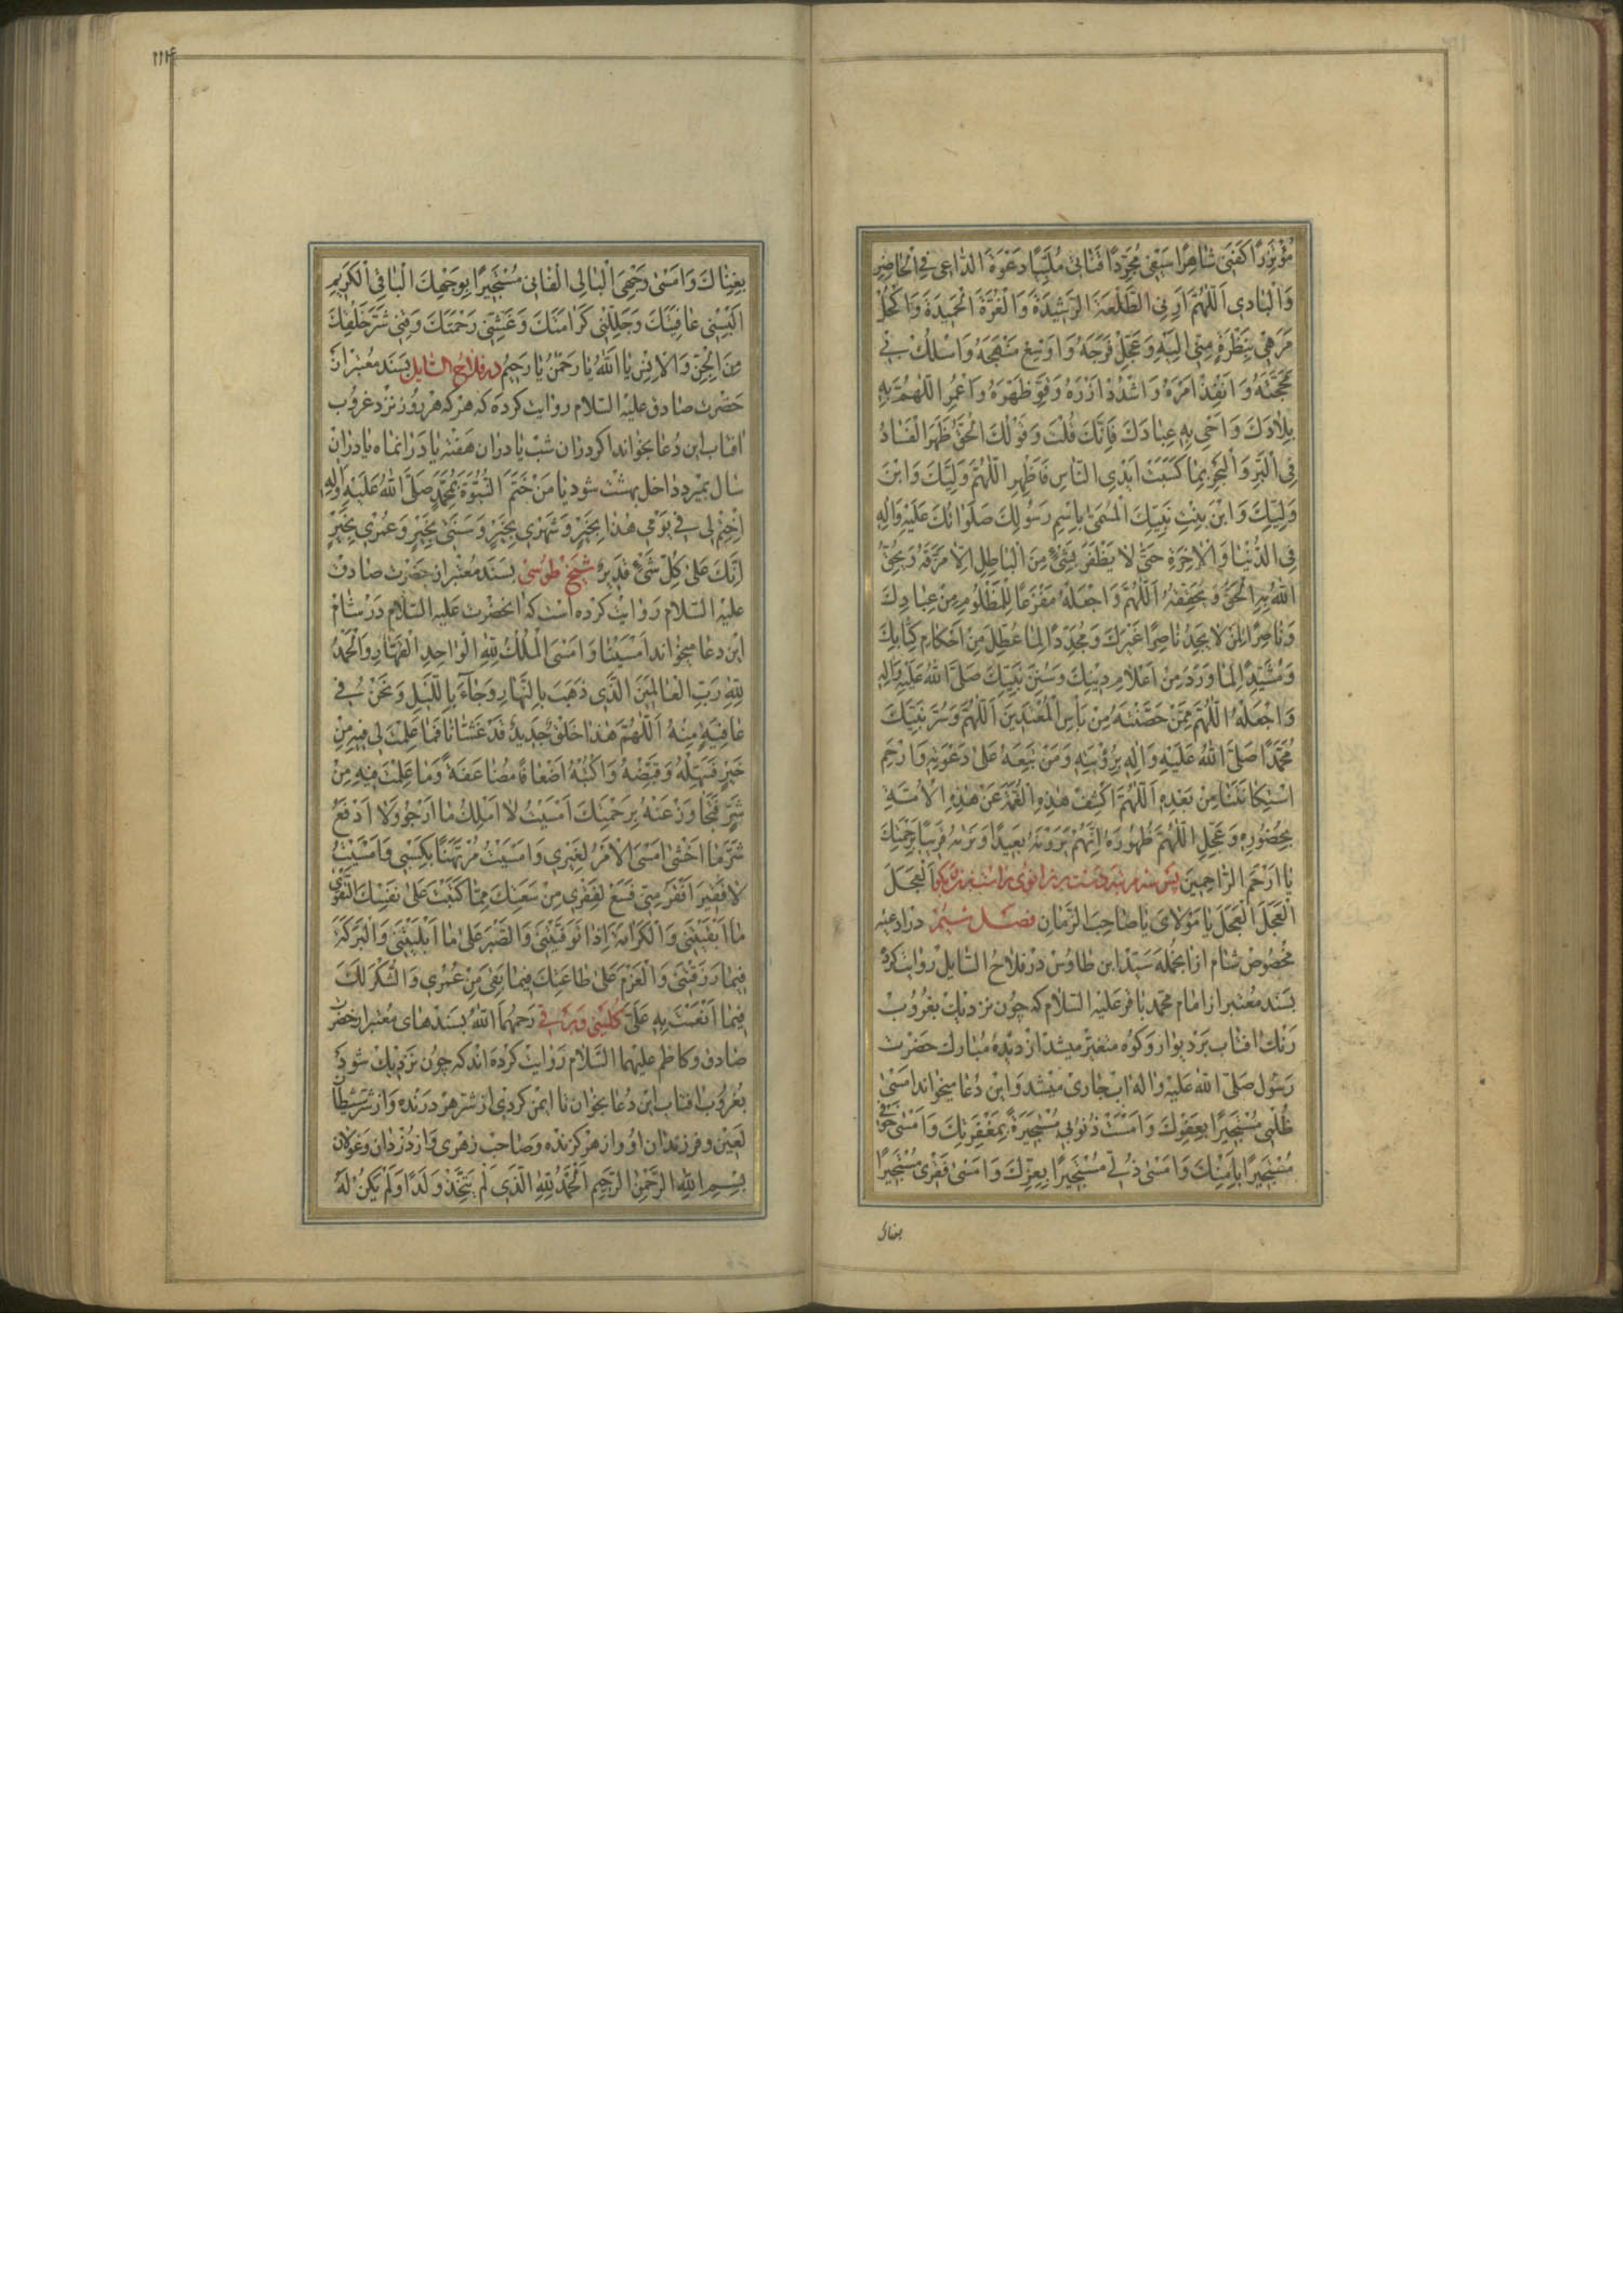 مُؤْتَزِرًا كَفَنِي شَاهِرًا سَيْفِي مُجَرِّدًا قَنَاتِي مُلَبِّيًا دَعْوَةَ الدَّاعِي فِي الْحَاضِرِ
وَالْبَادِي اَللّٰهُمَّ اَرِنِي الطَّلْعَةَ الرَّشِيدَةَ وَالْغُرَّةَ الْحَمِيدَةَ وَاكْحُلْ
مَرَهِي بِنَظْرَةٍ مِنِّي اِلَيْهِ وَعَجِّلْ فَرَجَهُ وَاَوْسِعْ مَنْهَجَهُ وَاسْلُكْ بِي
مَحَجَّتَهُ وَاَنْفِذْ اَمْرَهُ وَاشْدُدْ اَزْرَهُ وَقَوِّ ظَهْرَهُ وَاعْمُرِ اللّٰهُمَّ بِهِ
بِلَادَكَ وَاَحْيِ بِهِ عِبَادَكَ فَاِنَّكَ قُلْتَ وَقَوْلُكَ الْحَقُّ ظَهَرَ الْفَسَادُ
فِي الْبَرِّ وَالْبَحْرِ بِمَا كَسَبَتْ اَيْدِي النَّاسِ فَاَظْهِرِ اللّٰهُمَّ وَلِيَّكَ وَابْنَ
وَلِيِّكَ وَابْنَ بِنْتِ نَبِيِّكَ الْمُسَمّٰى بِاسْمِ رَسُولِكَ صَلَوَاتُكَ عَلَيْهِ وَاٰلِهِ
فِي الدُّنْيَا وَالْاٰخِرَةِ حَتّٰى لَا يَظْفَرَ بِشَيْءٍ مِنَ الْبَاطِلِ اِلَّا مَزَّقَهُ وَيُحِقُّ
اللّٰهُ بِهِ الْحَقَّ وَيُحَقِّقُهُ اَللّٰهُمَّ وَاجْعَلْهُ مَفْزَعًا لِلْمَظْلُومِ مِنْ عِبَادِكَ
وَنَاصِرًا لِمَنْ لَا يَجِدُ نَاصِرًا غَيْرَكَ وَمُجَدِّدًا لِمَا عُطِّلَ مِنْ اَحْكَامِ كِتَابِكَ
وَمُشَيِّدًا لِمَا وَرَدَ مِنْ اَعْلَامِ دِينِكَ وَسُنَنِ نَبِيِّكَ صَلَّى اللّٰهُ عَلَيْهِ وَاٰلِهِ
وَاجْعَلْهُ اللّٰهُمَّ مِمَّنْ حَصَّنْتَهُ مِنْ بَأْسِ الْمُعْتَدِينَ اَللّٰهُمَّ وَسُرَّ نَبِيَّكَ
مُحَمَّدًا صَلَّى اللّٰهُ عَلَيْهِ وَاٰلِهِ بِرُؤْيَتِهِ وَمَنْ تَبِعَهُ عَلٰى دَعْوَتِهِ وَارْحَمِ
اسْتِكَانَتَنَا مِنْ بَعْدِهِ اَللّٰهُمَّ اكْشِفْ هٰذِهِ الْغُمَّةَ عَنْ هٰذِهِ الْاُمَّةِ
بِحُضُورِهِ وَعَجِّلِ اللّٰهُمَّ ظُهُورَهُ اِنَّهُمْ يَرَوْنَهُ بَعِيدًا وَنَرٰيهُ قَرِيبًا بِرَحْمَتِكَ
يَا اَرْحَمَ الرَّاحِمِينَ پس سه مرتبه دست بر زانوی راست بزن و بگو اَلْعَجَلَ
الْعَجَلَ الْعَجَلَ يَا مَوْلَايَ يَا صَاحِبَ الزَّمَانِ فصل سیم در ادعیه
مخصوص شام از انجمله سید ابن طاوس در فلاح السائل روایت کرده
بسند معتبر از امام محمد باقر علیه السلام که چون نزدیک بغروب
رنک افتاب بر دیوار و کوه متغیر میشد از دیدهٔ مبارک حضرت
رسول صلی الله علیه واله اب جاری میشد و این دعا میخواند اَمْسٰى
ظُلْمِي مُسْتَجِيرًا بِعَفْوِكَ وَاَمْسَتْ ذُنُوبِي مُسْتَجِيرَةً بِمَغْفِرَتِكَ وَاَمْسٰى خَوْفِي
مُسْتَجِيرًا بِاَمْنِكَ وَاَمْسٰى ذُلِّي مُسْتَجِيرًا بِعِزِّكَ وَاَمْسٰى فَقْرِي مُسْتَجِيرًا
بغناك
بِغِنَاكَ وَاَمْسٰى وَجْهِيَ الْبَالِي الْفَانِي مُسْتَجِيرًا بِوَجْهِكَ الْبَاقِي الْكَرِيمِ
اَلْبِسْنِي عَافِيَتَكَ وَجَلِّلْنِي كَرَامَتَكَ وَغَشِّنِي رَحْمَتَكَ وَقِنِي شَرَّ خَلْقِكَ
مِنَ الْجِنِّ وَالْاِنْسِ يَا اَللّٰهُ يَا رَحْمٰنُ يَا رَحِيمُ در فلاح السائل بسند معتبر از
حضرت صادق علیه السلام روایت کرده که هر که هر روز نزد غروب
افتاب این دعا بخواند اکر در ان شب یا در ان هفته یا در انماه یا در ان
سال بمیرد داخل بهشت شود يَا مَنْ خَتَمَ النُّبُوَّةَ بِمُحَمَّدٍ صَلَّى اللّٰهُ عَلَيْهِ وَاٰلِهِ
اِخْتِمْ لِي فِي يَوْمِي هٰذَا بِخَيْرٍ وَشَهْرِي بِخَيْرٍ وَسَنَتِي بِخَيْرٍ وَعُمْرِي بِخَيْرٍ
اِنَّكَ عَلٰى كُلِّ شَيْءٍ قَدِيرٌ شیخ طوسی بسند معتبر از حضرت صادق
علیه السلام روایت کرده است که انحضرت علیه السلام در شام
این دعا میخواند اَمْسَيْنَا وَاَمْسَى الْمُلْكُ لِلّٰهِ الْوَاحِدِ الْقَهَّارِ وَالْحَمْدُ
لِلّٰهِ رَبِّ الْعَالَمِينَ الَّذِي ذَهَبَ بِالنَّهَارِ وَجَاءَ بِاللَّيْلِ وَنَحْنُ فِي
عَافِيَةٍ مِنْهُ اَللّٰهُمَّ هٰذَا خَلْقٌ جَدِيدٌ قَدْ غَشَانَا فَمَا عَلِمْتَ لِي فِيهِ مِنْ
خَيْرٍ فَسَهِّلْهُ وَقَيِّضْهُ وَاكْتُبْهُ اَضْعَافًا مُضَاعَفَةً وَمَا عَلِمْتَ فِيهِ مِنْ
شَرٍّ فَتَجَاوَزْ عَنْهُ بِرَحْمَتِكَ اَمْسَيْتُ لَا اَمْلِكُ مَا اَرْجُو وَلَا اَدْفَعُ
شَرَّ مَا اَخْشٰى اَمْسَى الْاَمْرُ لِغَيْرِي وَاَمْسَيْتُ مُرْتَهَنًا بِكَسْبِي وَاَمْسَيْتُ
لَا فَقِيرَ اَفْقَرُ مِنِّي فَسَعْ لِفَقْرِي مِنْ سَعَتِكَ مِمَّا كَتَبْتَ عَلٰى نَفْسِكَ التَّقْوٰى
مَا اَبْقَيْتَنِي وَالْكَرَامَةَ اِذَا تَوَفَّيْتَنِي وَالصَّبْرَ عَلٰى مَا اَبْلَيْتَنِي وَالْبَرَكَةَ
فِيمَا رَزَقْتَنِي وَالْعَزْمَ عَلٰى طَاعَتِكَ فِيمَا بَقِيَ مِنْ عُمْرِي وَالشُّكْرَ لَكَ
فِيمَا اَنْعَمْتَ بِهِ عَلَيَّ کلینی و برقی رحمهما الله بسندهای معتبر از حضرت
صادق و کاظم علیهما السلام روایت کرده اند که چون نزدیک شود
بغروب افتاب این دعا بخوان تا ایمن کردی از شر هر درنده و از شر شیطان
لعین و فرزندان او و از هر کزنده و صاحب زهری و از دزدان و غولان
بِسْمِ اللّٰهِ الرَّحْمٰنِ الرَّحِيمِ اَلْحَمْدُ لِلّٰهِ الَّذِي لَمْ يَتَّخِذْ وَلَدًا وَلَمْ يَكُنْ لَهُ